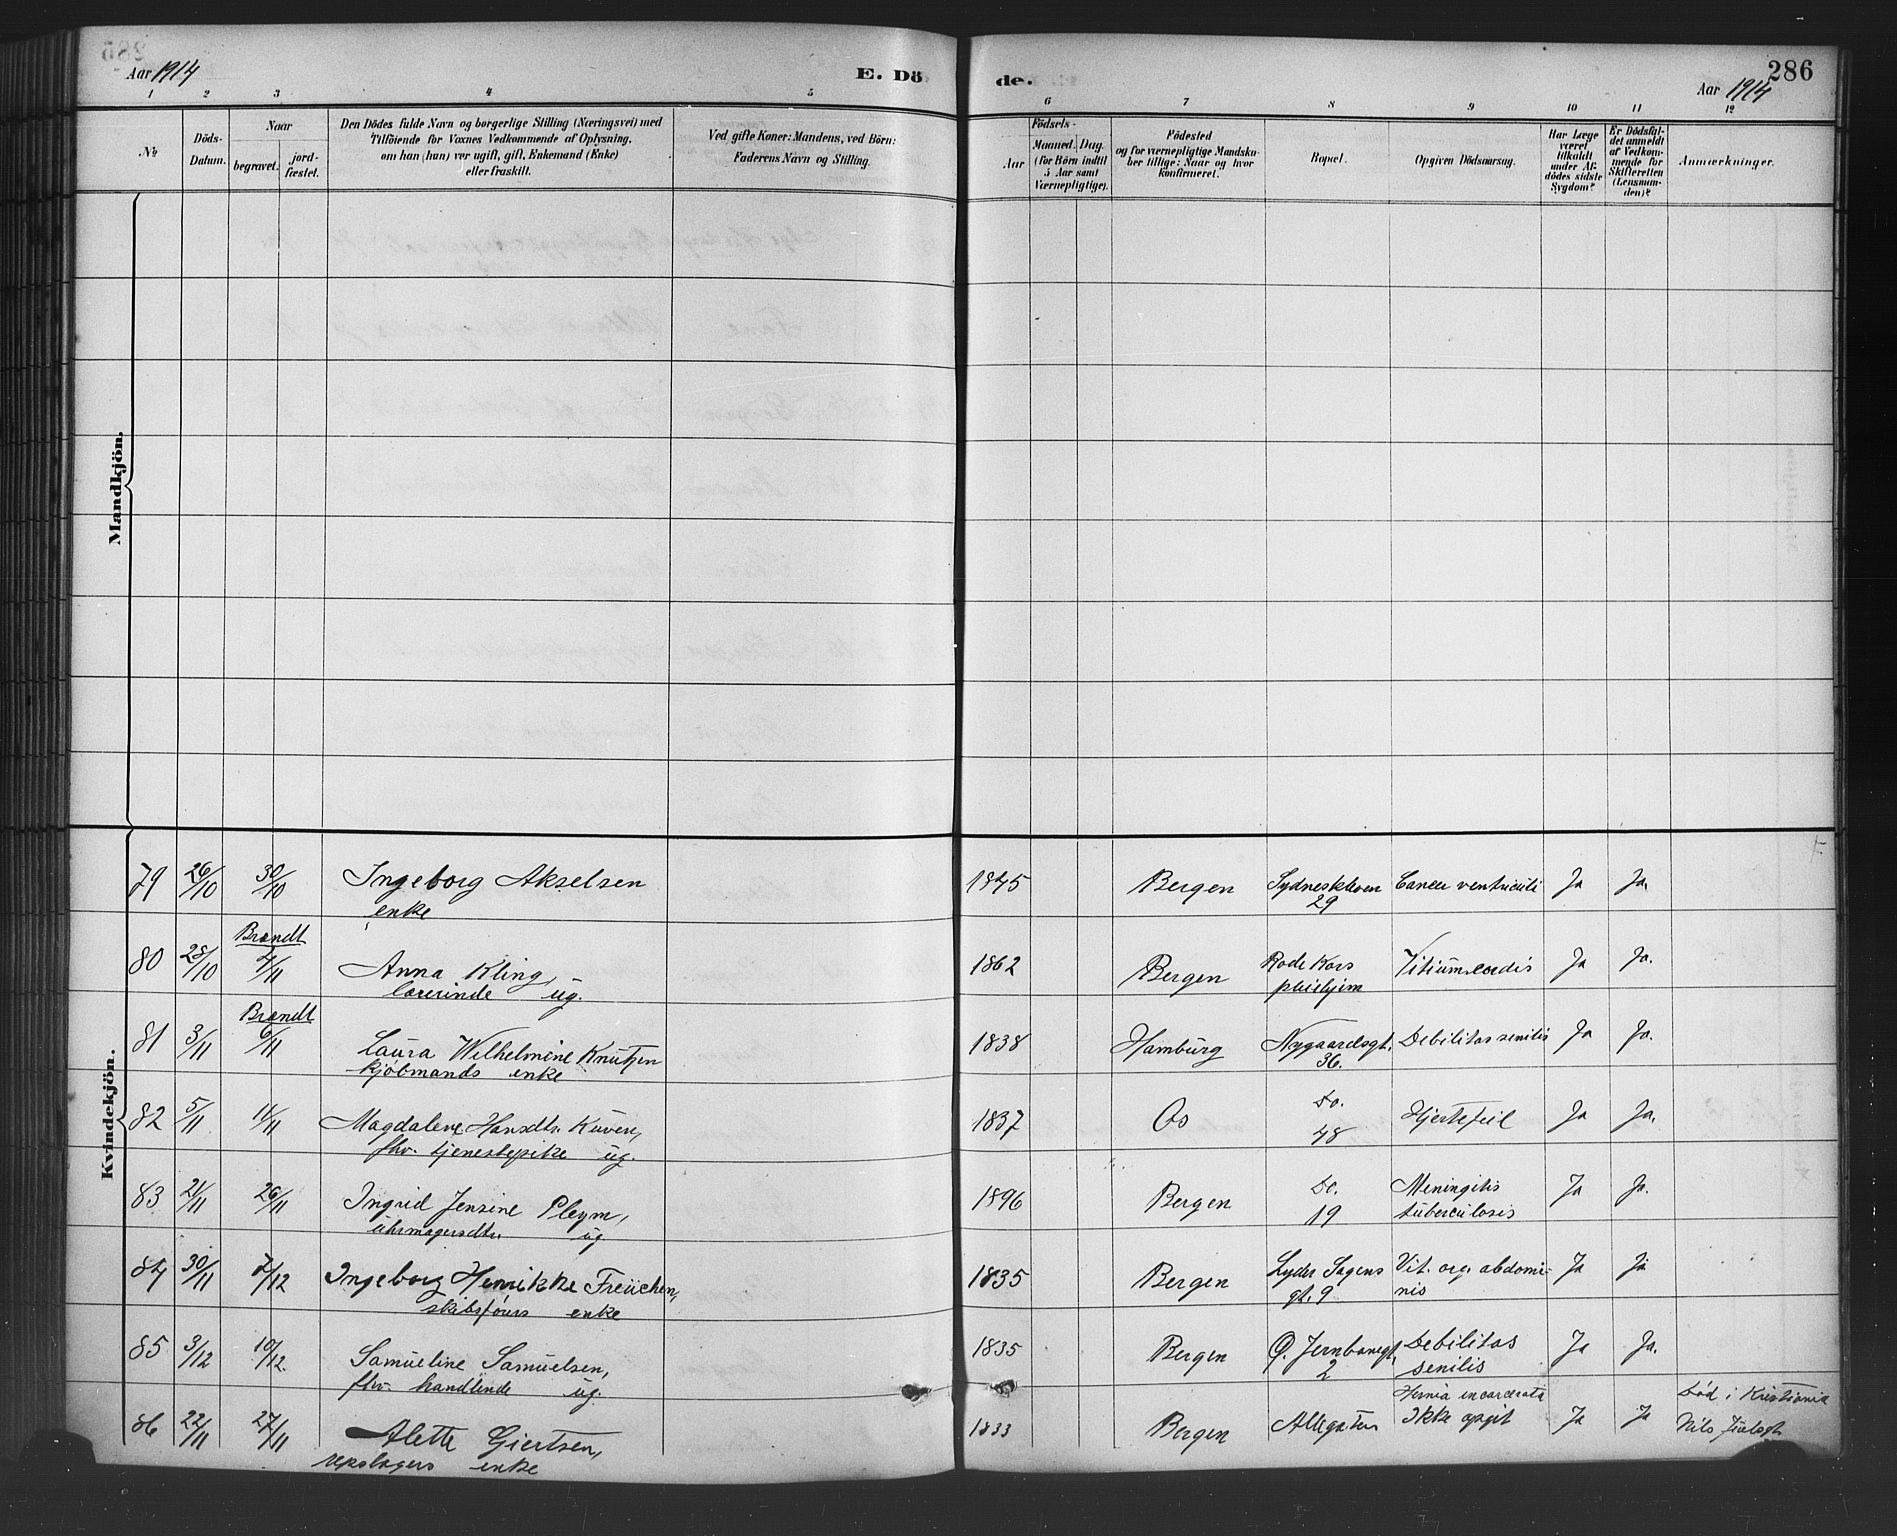 Aar 1914
E. Dö
de.
Aar 1914
286
1 2 3 4 5 6 7 8 9 10 11 12
No
Döds-Datum.
Naar
begravet.
jord-fæstet.
Den Dödes fulde Navn og borgerlige Stilling (Næringsvei) med
Tilföiende for Voxnes Vedkommende af Oplysning,
om han (hun) ver ugift, gift, Enkemand (Enke)
eller fraskilt.
Ved gifte Koner: Mandens, ved Börn:
Faderens Navn og Stilling.
Födsels-
Aar
Maaned. Dag.
(for Börn indtil
5 Aar samt
Værnepligtige).
Födested
og for værnepligtige Mandska-
ber tillige: Naar og hvor
konfirmeret.
Bopæl.
Opgiven Dödsaarsag.
Har Læge
været
tilkaldt
under Af-
dödes sidste
Sygdom?
Er Dödsfal-
det anmeldt
af Vedkom-
mende for
Skifteretten
(Lensman-
den)?
Anmærkninger.
Mandkjön.
Kvindekjön.
79 26/10 30/10 Ingeborg Akselsen 1845 Bergen Sydneskleven Cancer ventriculi Ja Ja.
enke 29
Brandt
80 28/10 4/11 Anna Kling, 1862 Bergen Rode Kors Vitium cordis Ja Ja.
lærerinde ug. pleiehjem
Brandt
81 3/11 6/11 Laura Wilhelmine Knutzen 1838 Hamburg Nygaardsgt. Debilitas senilis Ja Ja.
kjøbmands enke 36.
82 5/11 11/11 Magdalene Hansdtr. Kuven, 1837 Os Do. Hjertefeil Ja Ja.
fhv. tjenestepike ug. 48
83 21/11 26/11 Ingrid Jensine Pleym, 1896 Bergen Do. Meningitis Ja Ja.
uhrmagersdtr. ug. 19 tuberculosis
84 30/11 7/12 Ingeborg Henrikke Freuchen, 1835 Bergen Lyder Sagens Vit. org. abdomi- Ja Ja
skibsførers enke gt. 9 nis
85 3/12 10/12 Samueline Samuelsen, 1835 Bergen Ø. Jernbanegt. Debilitas Ja Ja.
fhv. handlende ug. 2 senilis
Hernia incarcerata Død i Kristiania
86 22/11 27/11 Alette Giertsen, 1833 Bergen Allegaten Ikke opgit Ja Ja Nils
repslagers enke